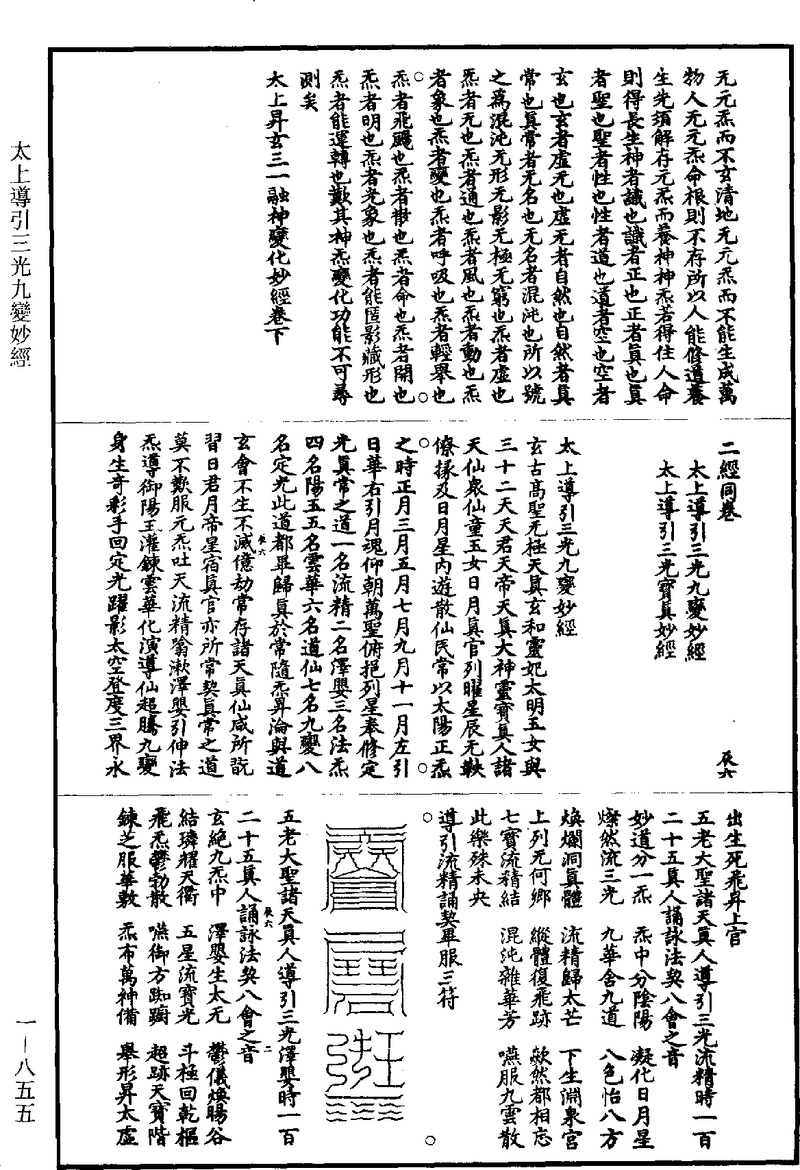 太上導引三光九變妙經
一—八五五
无元炁而不玄清地无元炁而不能生成萬
物人无元炁命根則不存所以人能修道養
生先須解存元炁而養神神炁若得住人命
則得長生神者識也識者正也正者真也真
者聖也聖者性也性者道也道者空也空者
玄也玄者虛无也虛无者自然也自然者真
常也真常者无名也无名者混沌也所以號
之爲混沌无形无影无極无窮也炁者虛也
炁者无也炁者通也炁者風也炁者動也炁
者象也炁者變也炁者呼吸也炁者輕舉也
炁者飛颺也炁者散也炁者命也炁者開也
炁者明也炁者光象也炁者能匿影藏形也
炁者能運轉也歎其神炁變化功能不可尋
測矣
太上昇玄三一融神變化妙經卷下
二經同卷
辰六
太上導引三光九變妙經
太上導引三光寶真妙經
太上導引三光九變妙經
玄古高聖无極天真玄和靈妃太明玉女與
三十二天天君天帝天真大神靈寶真人諸
天仙衆仙童玉女日月真官列曜星辰无鞅
僚掾及日月星內遊散仙民常以太陽正炁
之時正月三月五月七月九月十一月左引
日華右引月魂仰朝萬聖俯挹列星奉修定
光真常之道一名流精二名澤嬰三名法炁
四名陽玉五名雲華六名道仙七名九變八
名定光此道都畢歸真於常隨炁昇淪與道
玄會不生不滅億劫常存諸天真仙咸所翫
辰六
習日君月帝星宿真官亦所常契真常之道
莫不歎服元炁吐天流精噏漱澤嬰引伸法
炁導御陽玉灌鍊雲華化演導仙超騰九變
身生奇彩手回定光躍影太空登度三界永
出生死飛昇上官
五老大聖諸天真人導引三光流精時一百
二十五真人誦詠法契八會之音
妙道分一炁 炁中分陰陽 凝化日月星
燦然流三光 九華舍九道 八色怡八方
煥爛洞真體 流精歸太芒 下生淵泉宮
上列元何鄉 縱體復飛跡 歘然都相忘
七寶流精結 混沌雜華芳 嚥服九雲散
此樂殊未央
導引流精誦契畢服三符
五老大聖諸天真人導引三光澤嬰時一百
辰六 二
二十五真人誦詠法契八會之音
玄絶九炁中 澤嬰生太无 鬱儀煥暘谷
結璘耀天衢 五星流寶光 斗極回乾樞
飛炁鬱勃散 嚥御方踟躕 超跡天寶階
鍊芝服華敷 炁布萬神備 舉形昇太虛